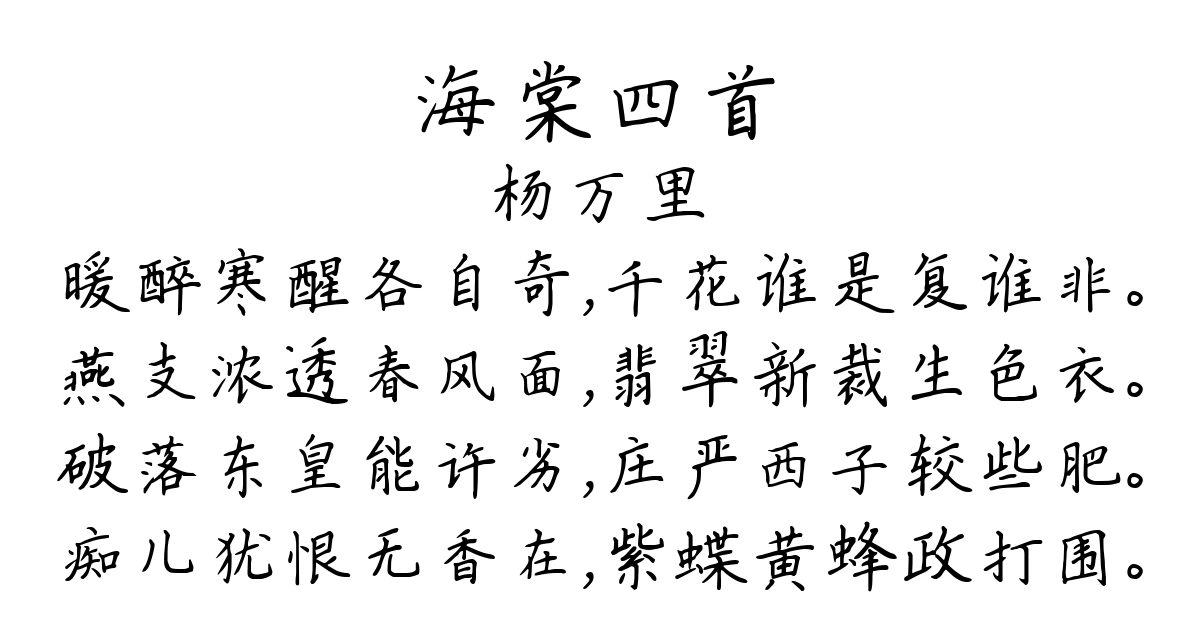 海棠四首
杨万里
暖醉寒醒各自奇,千花谁是复谁非。
燕支浓透春风面,翡翠新裁生色衣。
破落东皇能许劣,庄严西子较些肥。
痴儿犹恨无香在,紫蝶黄蜂政打围。